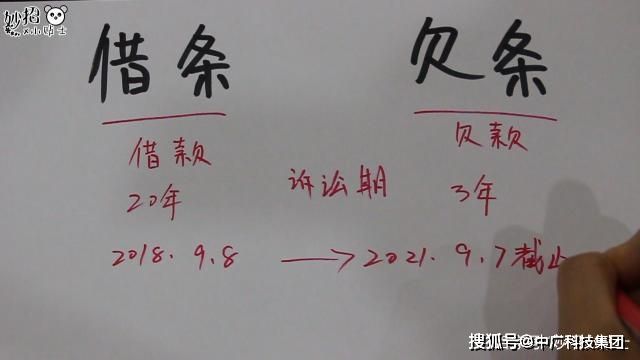 妙招
x小贴士
借条 欠条
借款 欠款
20年 诉讼期 3年
2018.9.8 → 2021.9.7截止
搜狐号@中广科技集团